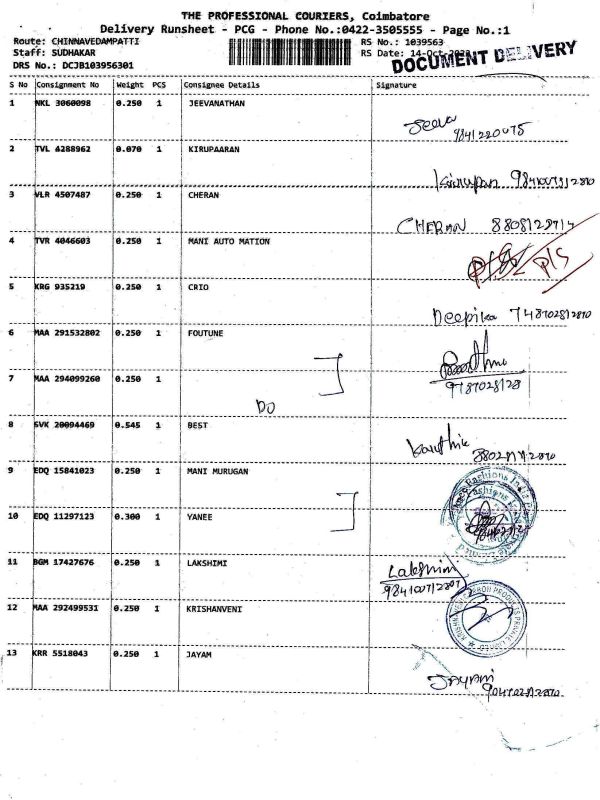 THE PROFESSIONAL COURIERS, Coimbatore
Delivery Runsheet - PCG - Phone No.:0422-3505555 - Page No.:1
Route: CHINNAVEDAMPATTI
RS No.: 1039563
Staff: SUDHAKAR
RS Date: 14-Oct-
DOCUMENT DELIVERY
DRS No.: DCJB103956301
S No Consignment No Weight PCS Consignee Details Signature
1 NKL 3060098 0.250 1 JEEVANATHAN
Jeeva
9841220075
2 TVL 4288962 0.070 1 KIRUPAARAN
3 VLR 4507487 0.250 1 CHERAN
CHERAN
4 TVR 4046603 0.250 1 MANI AUTO MATION
P/S
5 KRG 935219 0.250 1 CRIO
Deepika
6 MAA 291532802 0.250 1 FOUTUNE
7 MAA 294099260 0.250 1
DO
8 SVK 20094469 0.545 1 BEST
Karthik
9 EDQ 15841023 0.250 1 MANI MURUGAN
10 EDQ 11297123 0.300 1 YANEE
11 BGM 17427676 0.250 1 LAKSHIMI
Lakshmi
12 MAA 292499531 0.250 1 KRISHANVENI
13 KRR 5518043 0.250 1 JAYAM